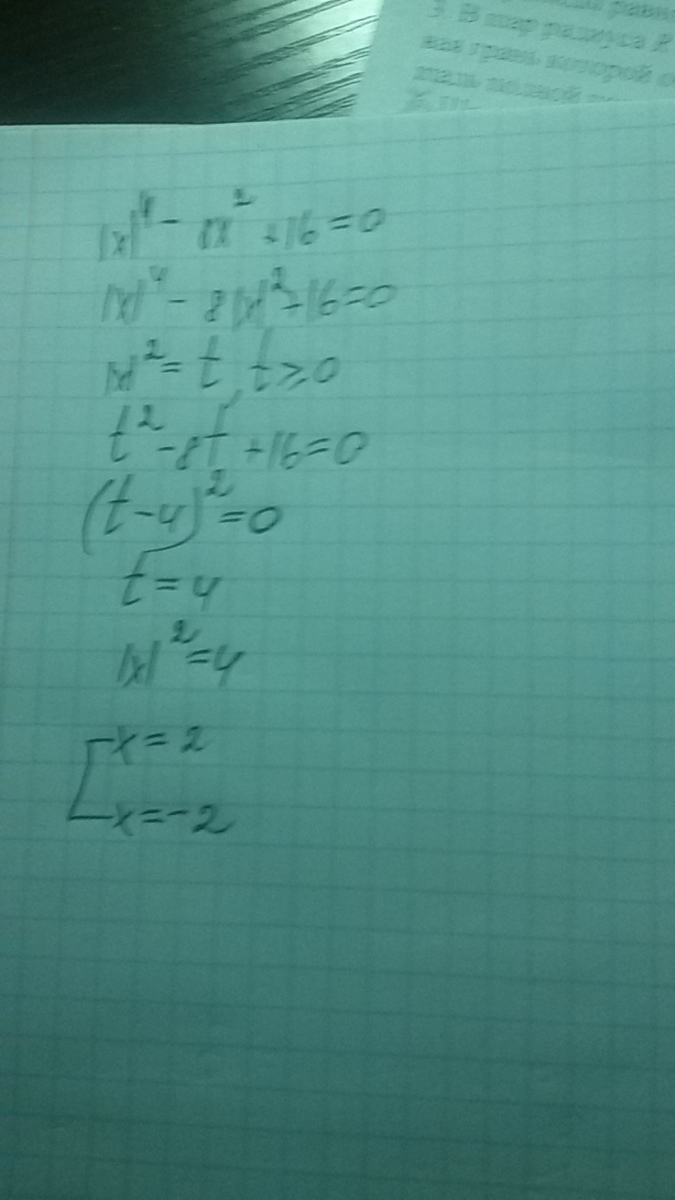 3. В шар радиуса R
вая грань которой о
щаль полной
|x|⁴ - 8x² + 16 = 0
|x|⁴ - 8|x|² + 16 = 0
|x|² = t, t ⩾ 0
t² - 8t + 16 = 0
(t - 4)² = 0
t = 4
|x|² = 4
[ x = 2
x = -2